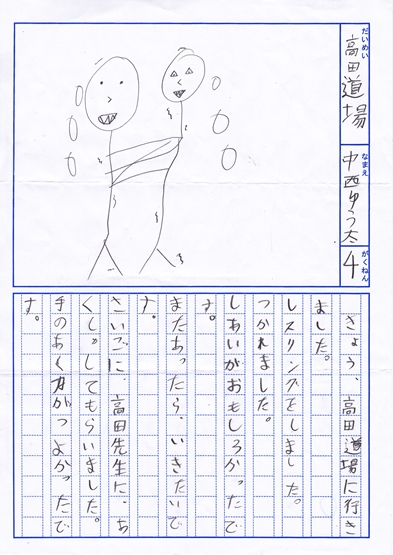 だいめい
高田道場
なまえ
中西ゆう太
がくねん
4
きょう、高田道場に行き
ました。
レスリングをしました。
つかれました。
しあいがおもしろかったで
す。
またあったら、いきたいで
す。
さいごに、高田先生に、あ
くしゅしてもらいました。
手のあく力がつよかったで
す。